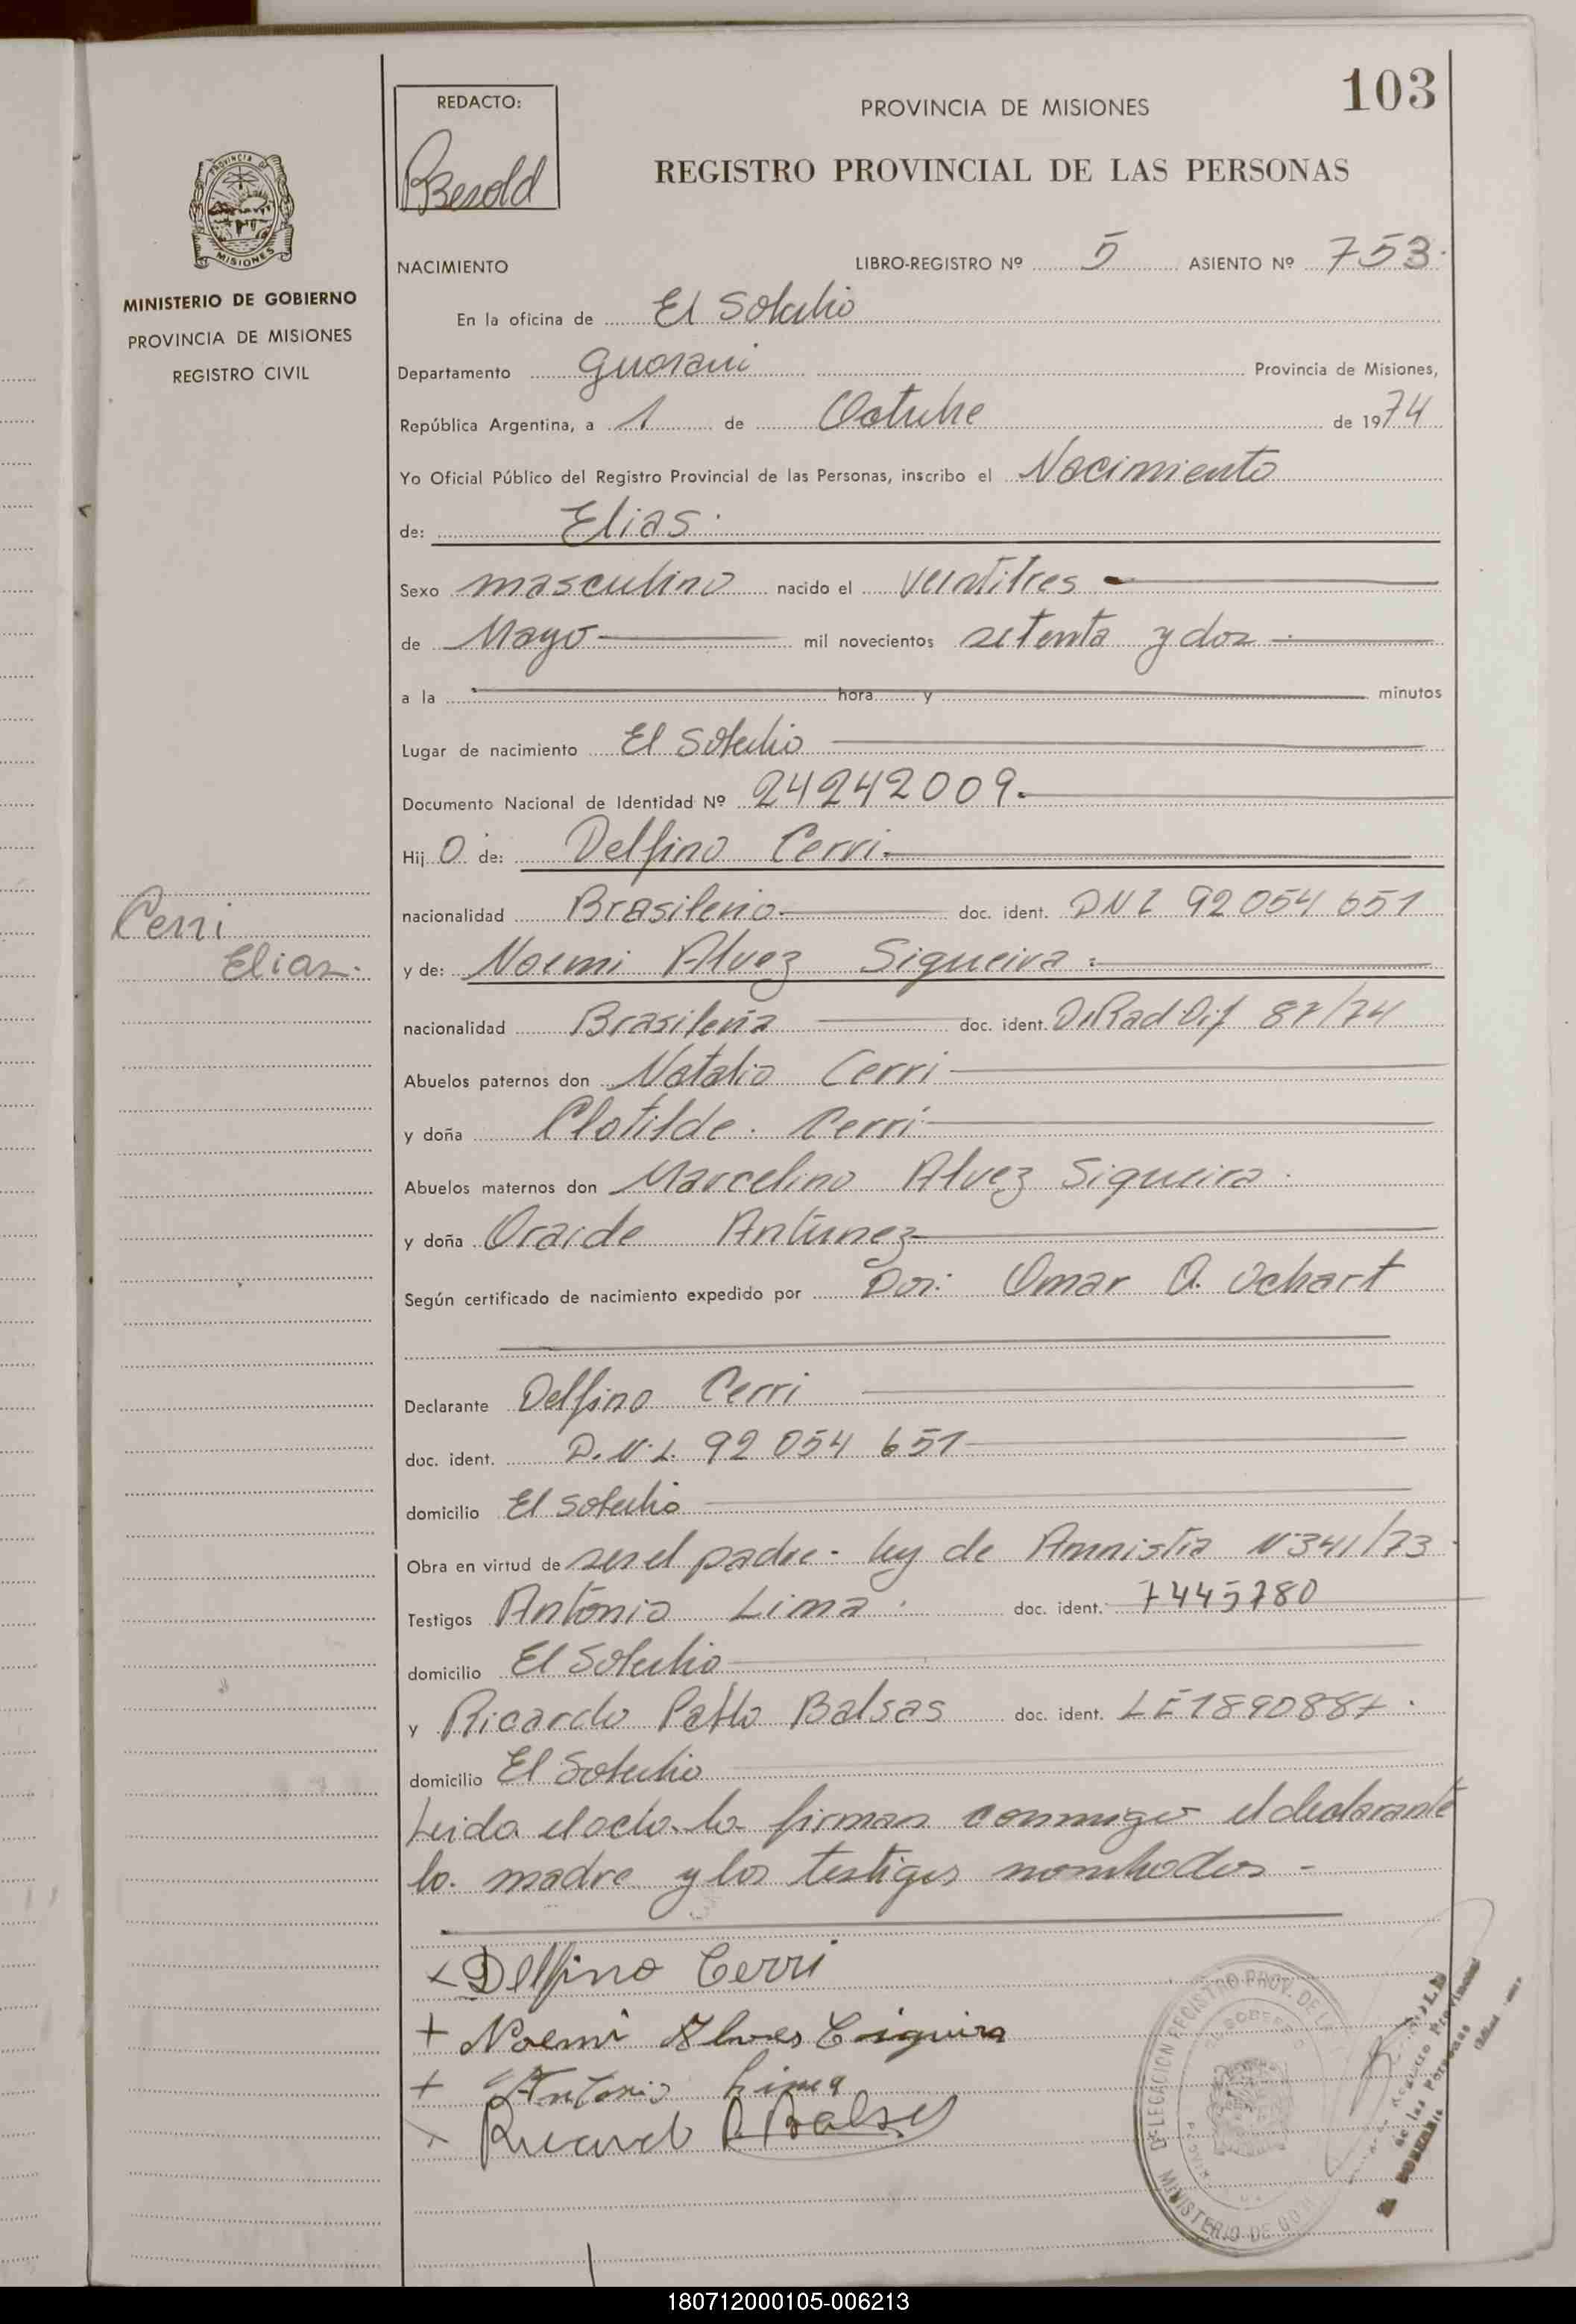 103
REDACTO:
PROVINCIA DE MISIONES
REGISTRO PROVINCIAL DE LAS PERSONAS
MISIONES
MINISTERIO DE GOBIERNO
PROVINCIA DE MISIONES
REGISTRO CIVIL
NACIMIENTO LIBRO-REGISTRO Nº 5 ASIENTO Nº 753
En la oficina de El Soberbio
Departamento Guarani Provincia de Misiones,
República Argentina, a 1 de Octubre de 1974
Yo Oficial Público del Registro Provincial de las Personas, inscribo el Nacimiento
de: Elias.
Sexo masculino nacido el veintitres
de Mayo mil novecientos setenta y dos
a la hora y minutos
Lugar de nacimiento El Soberbio
Documento Nacional de Identidad Nº 24242009.
Hij o de: Delfino Cerri
Cerri
Elias.
nacionalidad Brasileño doc. ident. DNI 92 054 651
y de: Noemi Alvez Siqueira
nacionalidad Brasileña doc. ident. 87/74
Abuelos paternos don Natalio Cerri
y doña Clotilde Cerri
Abuelos maternos don Marcelino Alvez Siqueira
y doña Oraide Antunez
Según certificado de nacimiento expedido por Omar O. Ochart
Declarante Delfino Cerri
doc. ident. D.N.I. 92 054 651
domicilio El Soberbio
Obra en virtud de ser el padre - ley de Amnistia Nº 341/73
Testigos Antonio Lima doc. ident. 7445780
domicilio El Soberbio
y Ricardo Pablo Balsas doc. ident. LE 1890887.
domicilio El Soberbio
Leida el acta la firman conmigo el declarante
la madre y los testigos nombrados -
Delfino Cerri
+ Noemi Alves Ciqueira
+ Antonio Lima
Ricardo P Balsas
DELEGACION REGISTRO PROV. DE L
MINISTERIO DE GO
180712000105-006213